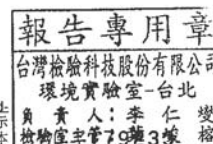 報告專用章
台灣檢驗科技股份有限公司
環境實驗室-台北
負責人：李仁燮
檢驗室主管：